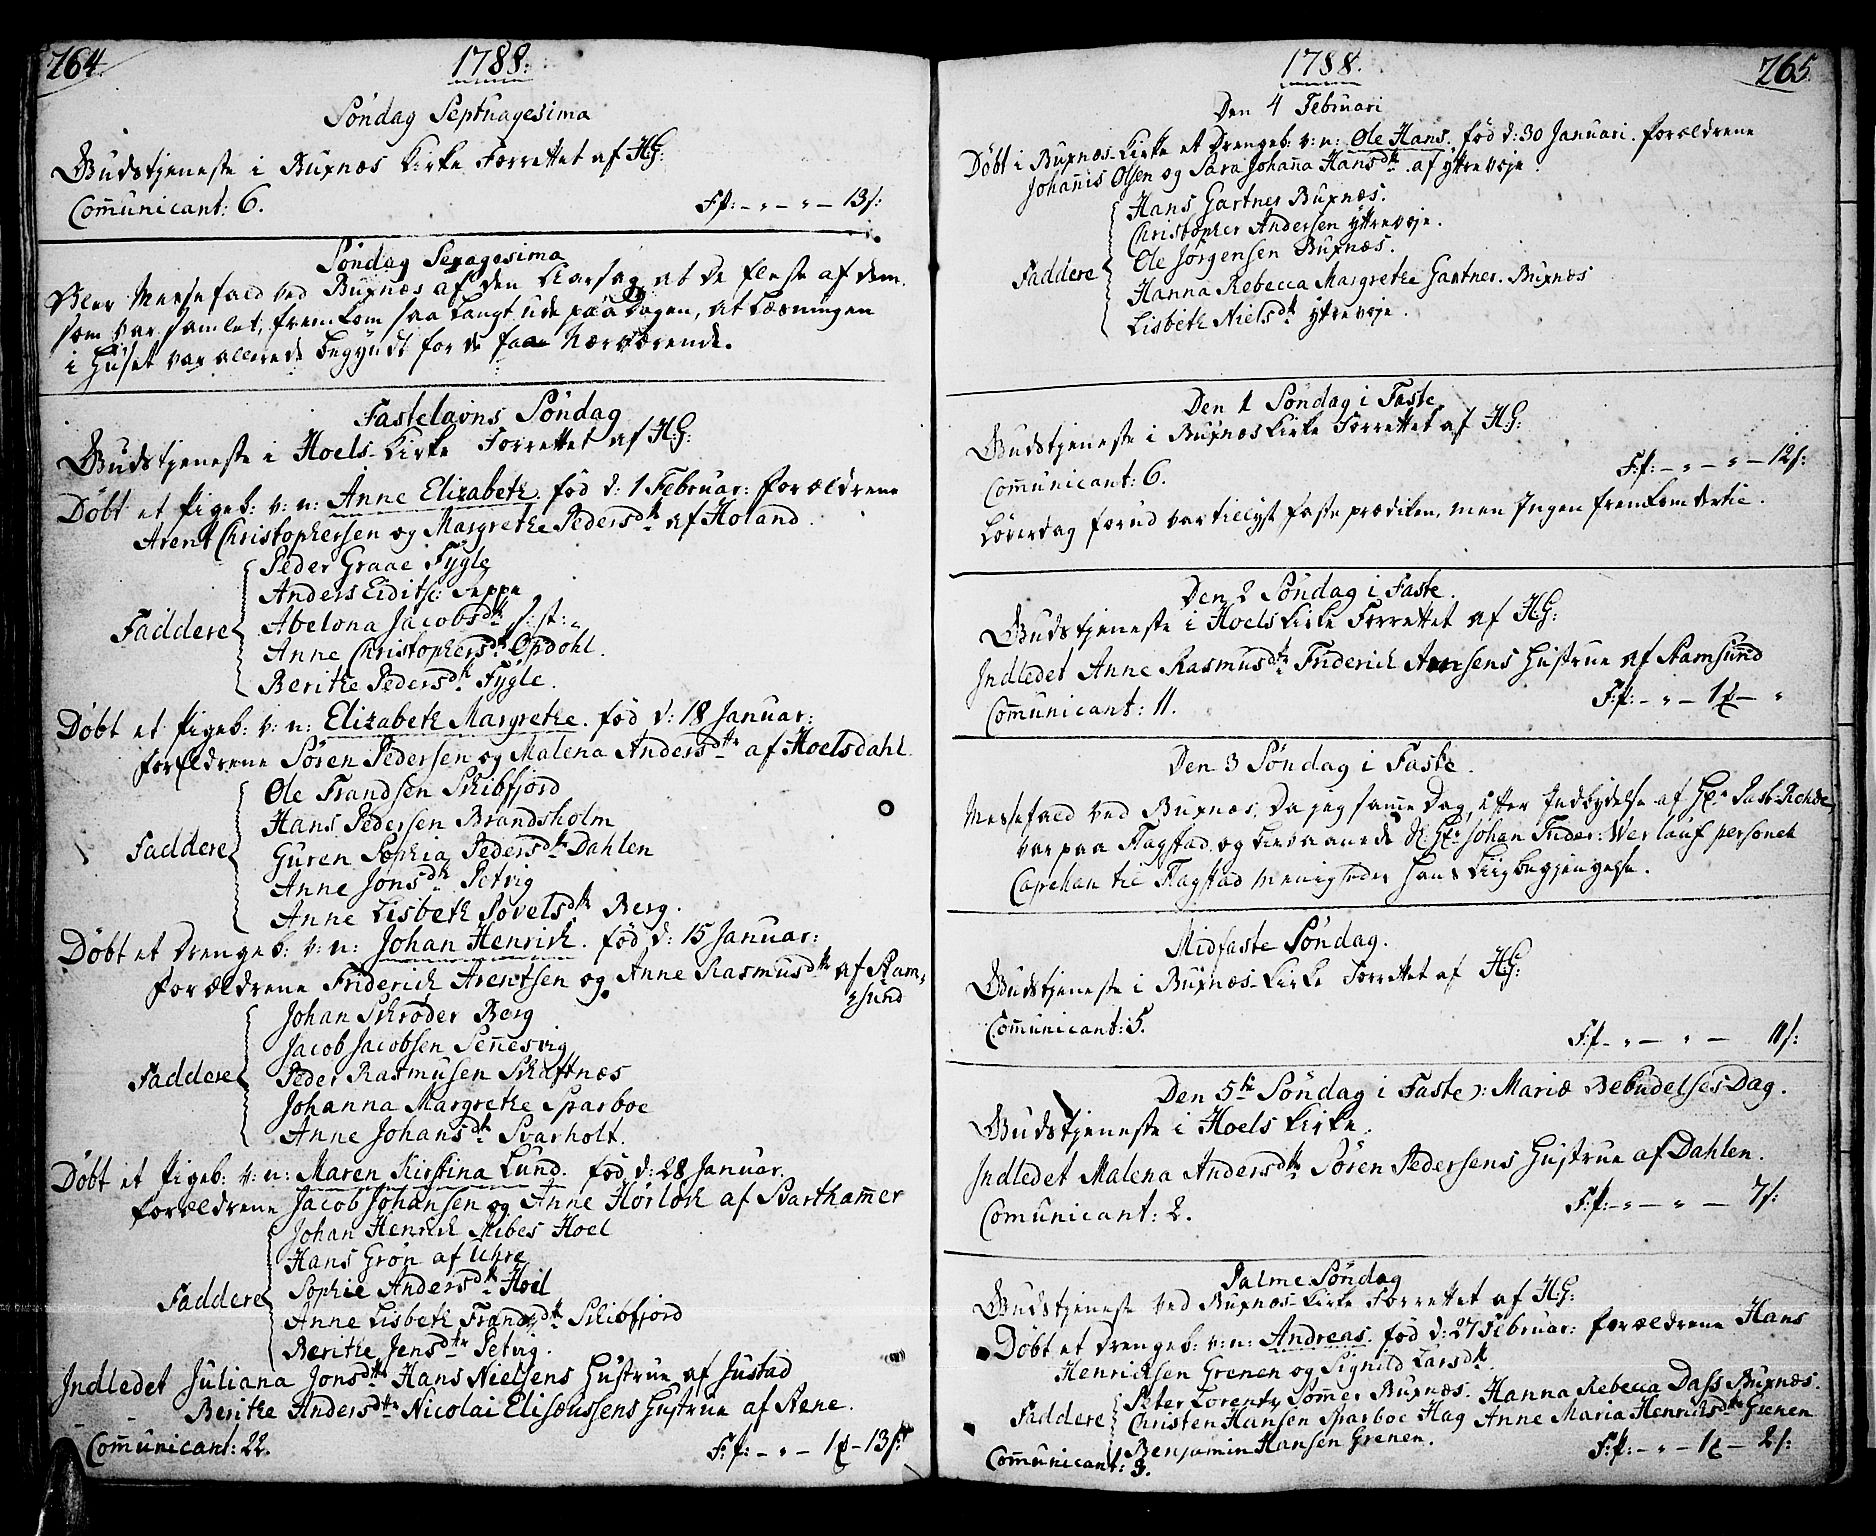 264.
1788.
Søndag Septuagesima
Gudstjeneste i Buxnæs Kirke Forrettet af HG:
Com̄unicant: 6.
F:f: – „ – „ – 13 s:
Søndag Sexagesima
Blev Messefald ved Buxnæs af den Aarsag at de fleste af dem.
som var samlet, fremkom saa langt ude paa Dagen, at Læsningen
i Huset var allerede begyndt for de faae Nærværende.
Fastelavns Søndag
Gudstjeneste i Hoels-Kirke Forrettet af H:G:
Døbt et Pigeb: v: n: Anne Elizabeth. fød d: 1 Februar: Forældrene
Arent Christophersen og Margrethe Pedersdtr af Holand.
Faddere
Peder Graae Fygle
Anders Eidits: Seppe
Abelona Jacobsdtr s: st: „
Anne Christophersdtr Opdohl.
Berithe Pedersdtr Fygle.
Døbt et Pigeb: v: n: Elizabeth Margrethe. fød d: 18 Januar:
Forældrene Søren Pedersen og Malena Andersdtr af Hoelsdahl.
Faddere
Ole Frandsen Skibfjord
Hans Pedersen Brandsholm
Guren Sophia Pedersdtr Dahlen
Anne Jonsdtr Petvig
Anne Lisbeth Povelsdtr Berg.
Døbt et Drengeb: v: n: Johan Henrich. fød d: 15 Januar:
Forældrene Friderich Arentsen og Anne Rasmusdtr af Ram=
=sund
Faddere
Johan Schrøder Berg
Jacob Jacobsen Sen̄esvig
Peder Rasmusen Skaftnæs
Johanna Margrethe Sparboe
Anne Johansdtr Svarholt.
Døbt et Pigeb: v: n: Maren Kirstina Lund. fød d: 28 Januar.
Forældrene Jacob Johansen og Anne Hørløck af Svartham̄er
Faddere
Johan Henrich Mebes Hoel
Hans Grøn af Uhre
Sophie Andersdtr Hoel
Anne Lisbeth Frandsdtr Skibfjord
Berithe Jensdtr Petvig.
Indledet Juliana Jonsdtr Hans Nielsens Hustrue af Justad
Berithe Andersdtr Nicolai Elisæussens Hustrue af Rene.
Com̄unicant: 22.
F:f: – „ – 1 – 13 s:
1788.
265
Den 4 Februari
Døbt i Buxnæs-Kirke et Drengeb: v: n: Ole Hans. fød d: 30 Januari. Forældrene
Johan̄is Olsen og Sara Johan̄a Hansdtr. af Yttrevoje.
Faddere
Hans Gartner Buxnæs.
Christopher Andersen Yttrevoje.
Ole Jørgensen Buxnæs.
Hanna Rebecca Margrethe Gartner. Buxnæs
Lisbeth Nielsdtr Yttrevoje.
Den 1 Søndag i Faste.
Gudstjeneste i Buxnæs Kirke Forrettet af HG:
Com̄unicant: 6.
F:f: – „ – „ – 12 s:
Løverdag forud var tillyst Faste prædiken, men Ingen fremkom dertil.
Den 2 Søndag i Faste.
Gudstjeneste i Hoels Kirke Forrettet af HG:
Indledet Anne Rasmusdtr Friderich Arensens Hustrue af Ramsund
Com̄unicant: 11.
F:f: – „ – 1 – „
Den 3 Søndag i Faste.
Messefald ved Buxnæs, Da jeg sam̄e Dag, efter Indbydelse af Hr. Past: Rohde,
var paa Flagstad og bivaanede S: Hr: Johan Frider: Werlauf personel
Capellan til Flagstad Menigheder hans Liigbegjengelse.
Midfaste Søndag.
Gudstjeneste i Buxnæs-Kirke Forrettet af HG:
Com̄unicant: 5.
F:f – „ – „ – 11 s:
Den 5te Søndag i Faste ɔ: Mariæ BebudelsesDag.
Gudstjeneste i Hoels Kirke.
Indledet Malena Andersdtr Søren Pedersens Hustrue af Dahlen.
Comunicant: 2.
F:f: – „ – „ – 7 s:
Palme Søndag
Gudstjeneste ved Buxnæs-Kirke Forrettet af H:G:
Døbt et Drengeb: v: n: Andreas. fød d: 27 Februar: Forældrene Hans
Henrichsen Grenen og Signild Larsdtr.
Faddere
Peter Lorentz Som̄er Buxnæs. Hanna Rebecca Dass Buxnæs.
Christen Hansen Sparboe Hag Anne Maria Henrichsdtr Grenen
Benjamin Hansen Grenen.
Com̄unicant: 3.
F:f: – „ – 1 – 2 s: